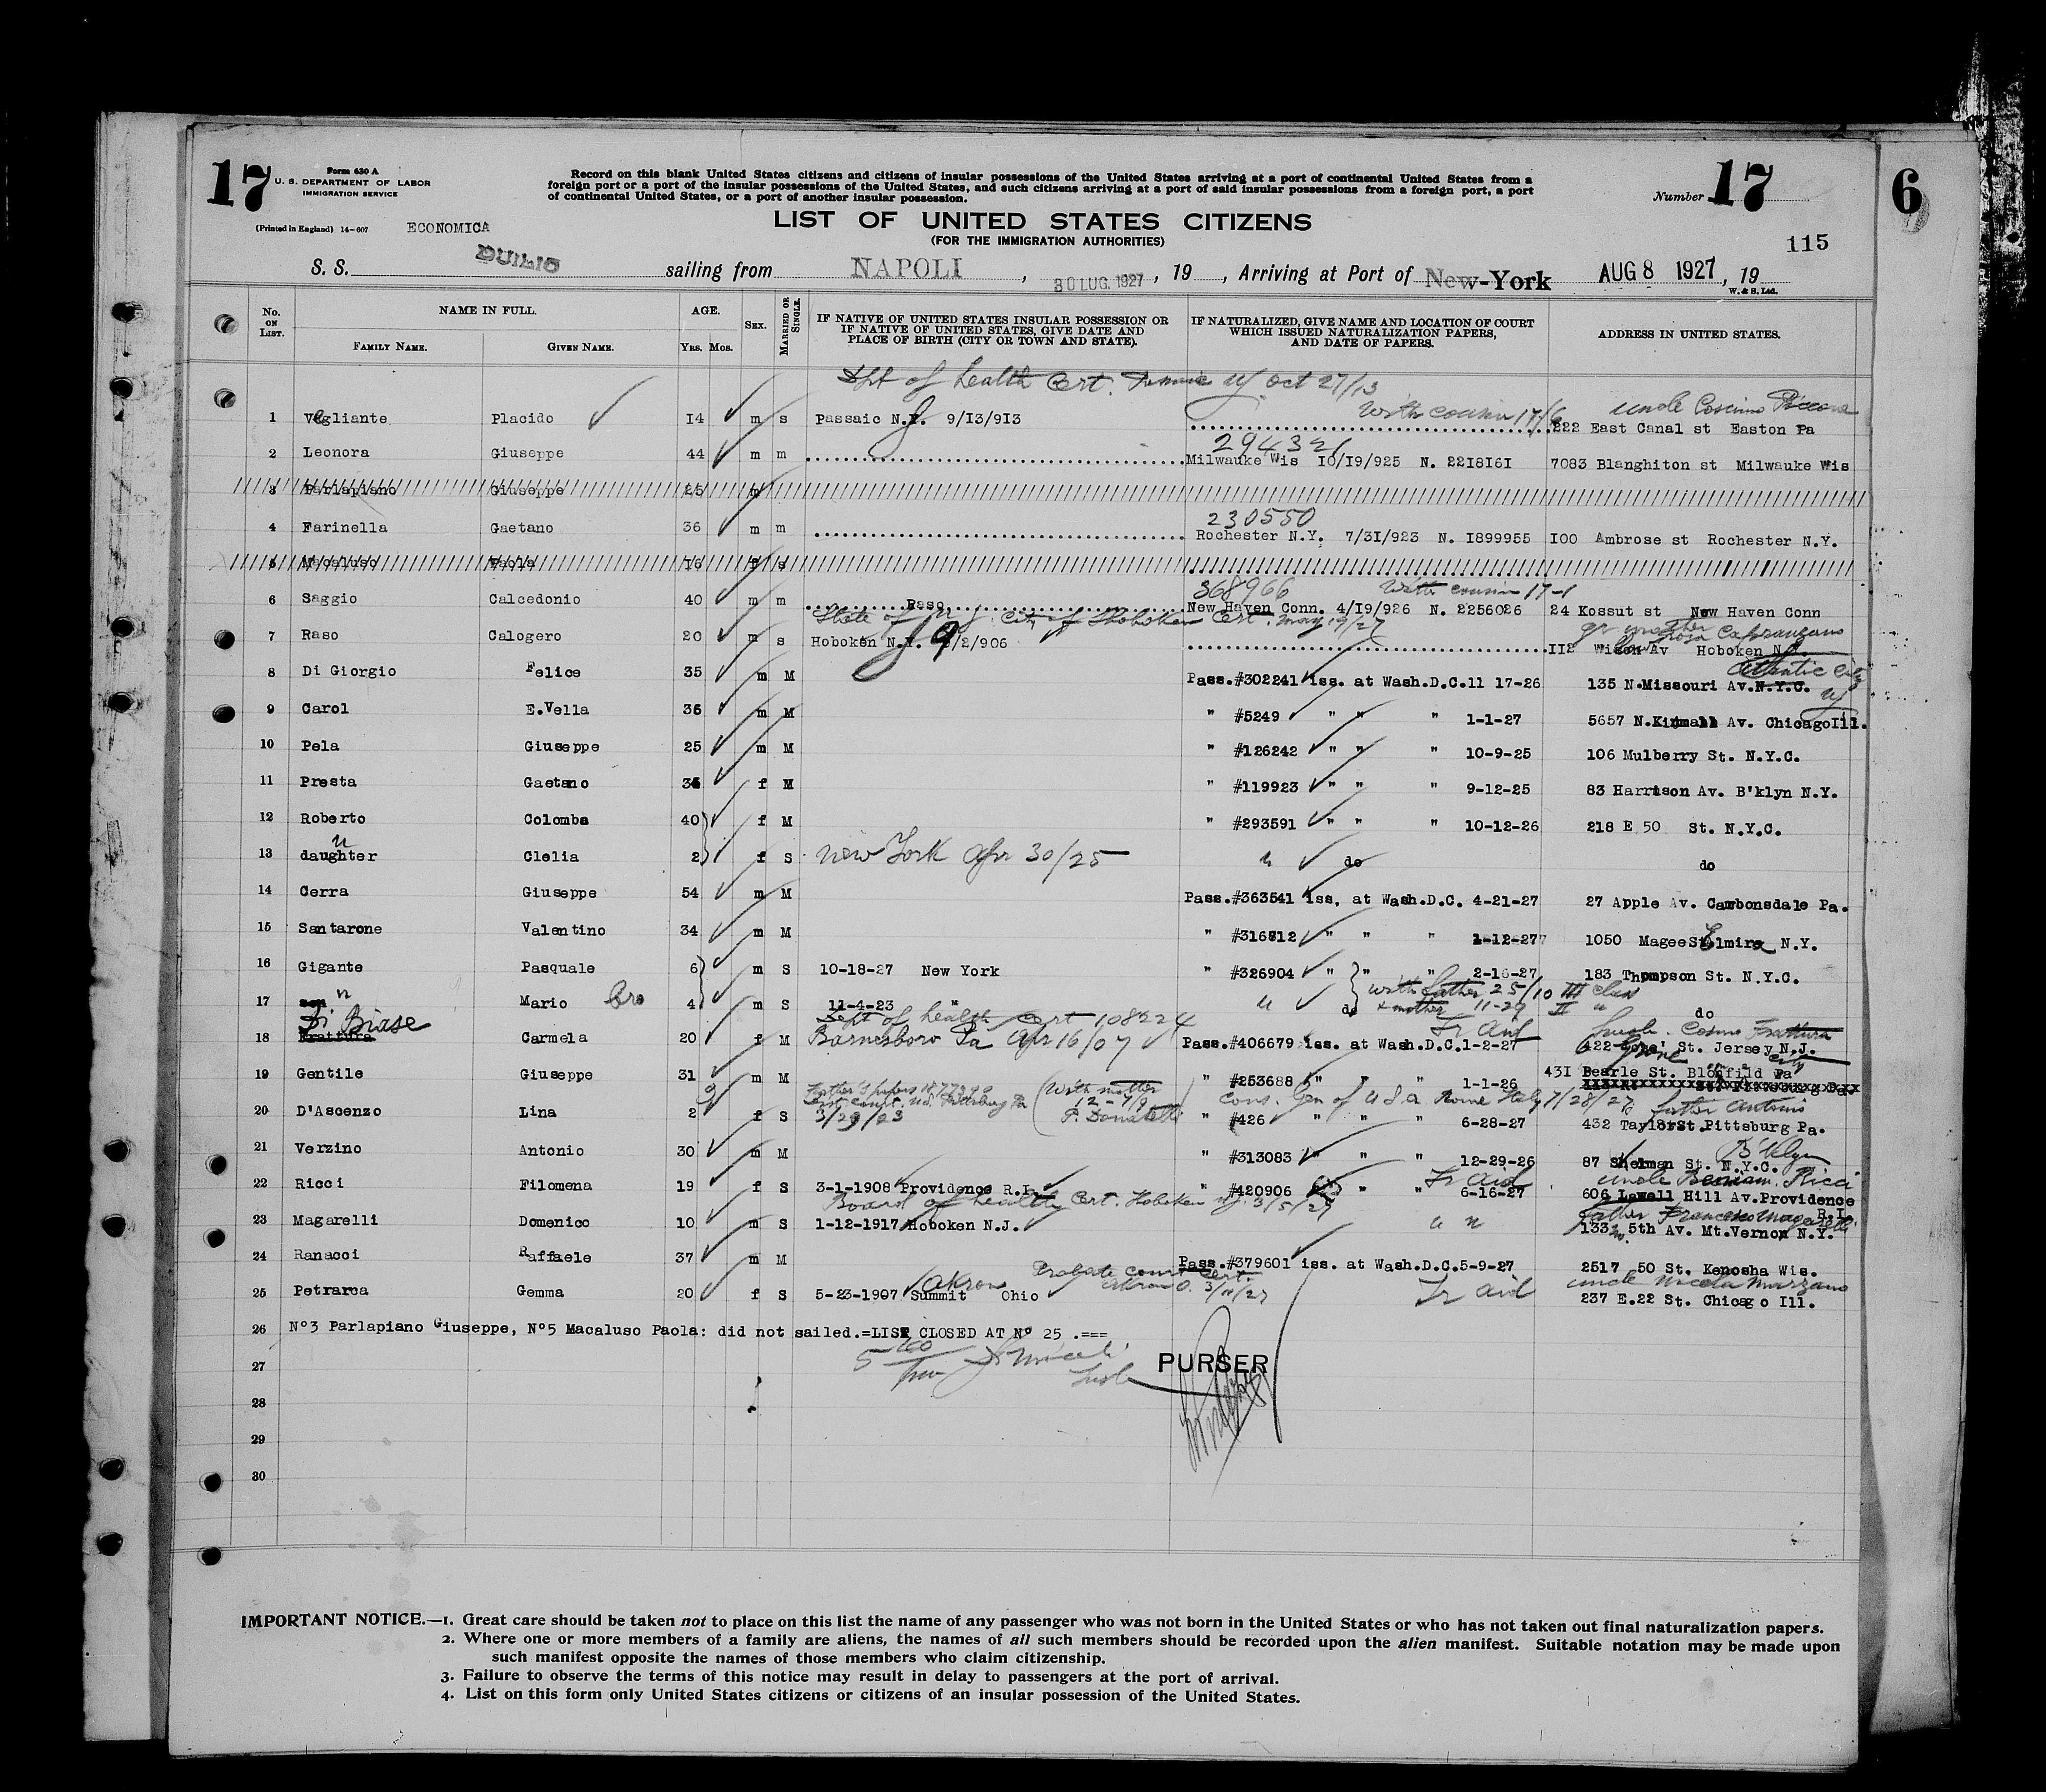 17
Form 630 A
U. S. DEPARTMENT OF LABOR
IMMIGRATION SERVICE
Record on this blank United States citizens and citizens of insular possessions of the United States arriving at a port of continental United States from a
foreign port or a port of the insular possessions of the United States, and such citizens arriving at a port of said insular possessions from a foreign port, a port
of continental United States, or a port of another insular possession.
Number 17
6
(Printed in England) 14-607 ECONOMICA
LIST OF UNITED STATES CITIZENS
(FOR THE IMMIGRATION AUTHORITIES)
115
S. S. DUILIO sailing from NAPOLI, 30 LUG. 1927, 19, Arriving at Port of New-York AUG 8 1927, 19
W. & S. Ltd.
No. ON LIST. NAME IN FULL. AGE. SEX. MARRIED OR SINGLE. IF NATIVE OF UNITED STATES INSULAR POSSESSION OR IF NATIVE OF UNITED STATES, GIVE DATE AND PLACE OF BIRTH (CITY OR TOWN AND STATE). IF NATURALIZED, GIVE NAME AND LOCATION OF COURT WHICH ISSUED NATURALIZATION PAPERS, AND DATE OF PAPERS. ADDRESS IN UNITED STATES.
FAMILY NAME. GIVEN NAME. YRS. MOS.
Dpt of health Cert. NJ Oct 27/13
With cousin 17/6 uncle Cosimo
1 Vegliante Placido 14 m s Passaic N.J. 9/13/913 222 East Canal st Easton Pa
294321
2 Leonora Giuseppe 44 m m Milwauke Wis 10/19/925 N. 2218161 7083 Blanghiton st Milwauke Wis
3 Parlapiano Giuseppe 25 m
230550
4 Farinella Gaetano 36 m m Rochester N.Y. 7/31/923 N. 1899955 100 Ambrose st Rochester N.Y.
5 Macaluso Paola 16 f s
368966 With cousin 17-1
6 Saggio Calcedonio 40 m m Raso New Haven Conn. 4/19/926 N. 2256026 24 Kossut st New Haven Conn
State of NJ City of Hoboken Cert. May 19/27 gr mother Rosa Capranzano
7 Raso Calogero 20 m s Hoboken N.J. 9/2/906 112 Av Hoboken N.J.
8 Di Giorgio Felice 35 m M Pass.#302241 iss. at Wash.D.C.11 17-26 135 N.Missouri Av.N.Y.C. Atlantic City NJ
9 Carol E.Vella 36 m M " #5249 " " " 1-1-27 5657 N.Kimball Av. ChicagoIll.
10 Pela Giuseppe 25 m M " #126242 " " " 10-9-25 106 Mulberry St. N.Y.C.
11 Presta Gaetano f M " #119923 " " " 9-12-25 83 Harrison Av. B'klyn N.Y.
12 Roberto Colomba 40 f M " #293591 " " " 10-12-26 218 E 50 St. N.Y.C.
13 daughter " Clelia 2 f S New York Apr 30/25 " do do
14 Cerra Giuseppe 54 m M Pass.#363541 iss. at Wash.D.C. 4-21-27 27 Apple Av. Carbonsdale Pa.
15 Santarone Valentino 34 m M " #316812 " " " 1-12-27 1050 Magee St Elmira N.Y.
16 Gigante Pasquale 6 m S 10-18-27 New York " #326904 " " " 2-16-27 183 Thompson St. N.Y.C.
17 son " Mario Bro 4 m S 11-4-23 " " do with father 25/10 III class & mother 11-29 II " do
Di Biase
Dept of health Cert 108224 Tr Aid Cosmo Frattura
18 Frattura Carmela 20 f M Barnesboro Pa Apr 16/07 Pass.#406679 iss. at Wash.D.C.1-2-27 422 St. Jersey N.J.
19 Gentile Giuseppe 31 m M " #253688 " " " 1-1-26 431 Pearle St. Blomfild Pa
Father's papers 1877390 With mother 12-7/9 Cons. Gen of USA Rome Italy 7/28/27
father Antonio
20 D'Ascenzo Lina 2 f S 3/29/23 " #426 " " " 6-28-27 432 Taylor St.Pittsburg Pa.
21 Verzino Antonio 30 m M " #313083 " " " 12-29-26 87 Sherman St. N.Y.C. B'klyn
Tr Aid uncle Ricci
22 Ricci Filomena 19 f S 3-1-1908 Providence R.I. " #420906 " " 6-16-27 606 Lowell Hill Av.Providence R.I.
Board of health Cert. Hoboken NJ. 3/5/27 father Francesco Magarelli
23 Magarelli Domenico 10 m S 1-12-1917 Hoboken N.J. " " 133 5th Av. Mt.Vernon N.Y.
24 Ranacci Raffaele 37 m M Pass.#379601 iss. at Wash.D.C.5-9-27 2517 50 St. Kenosha Wis.
Akron Probate Court Cert. Akron O. Tr Aid uncle Nicola Marzano
25 Petrarca Gemma 20 f S 5-23-1907 Summit Ohio 237 E.22 St. Chicago Ill.
26 N°3 Parlapiano Giuseppe, N°5 Macaluso Paola: did not sailed.=LIST CLOSED AT N° 25 .===
27
PURSER
28
29
30
IMPORTANT NOTICE.—1. Great care should be taken not to place on this list the name of any passenger who was not born in the United States or who has not taken out final naturalization papers.
2. Where one or more members of a family are aliens, the names of all such members should be recorded upon the alien manifest. Suitable notation may be made upon
such manifest opposite the names of those members who claim citizenship.
3. Failure to observe the terms of this notice may result in delay to passengers at the port of arrival.
4. List on this form only United States citizens or citizens of an insular possession of the United States.